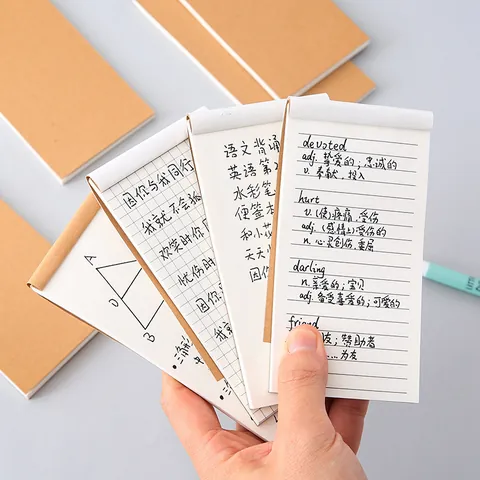 A
D
B
因你与我同行
我就不会孤
欢笑时你
忧伤时
因你
我
语文背诵
英语第
水彩笔
便签本
和小花
天天
因你
devoted
adj. 挚爱的；忠诚的
v. 奉献，投入
hurt
v. (使)疼痛，受伤
adj. (感情上)受伤的
n. 心灵创伤，委屈
darling
n. 亲爱的；宝贝
adj. 备受喜爱的；可爱的
friend
友；帮助者
……为友